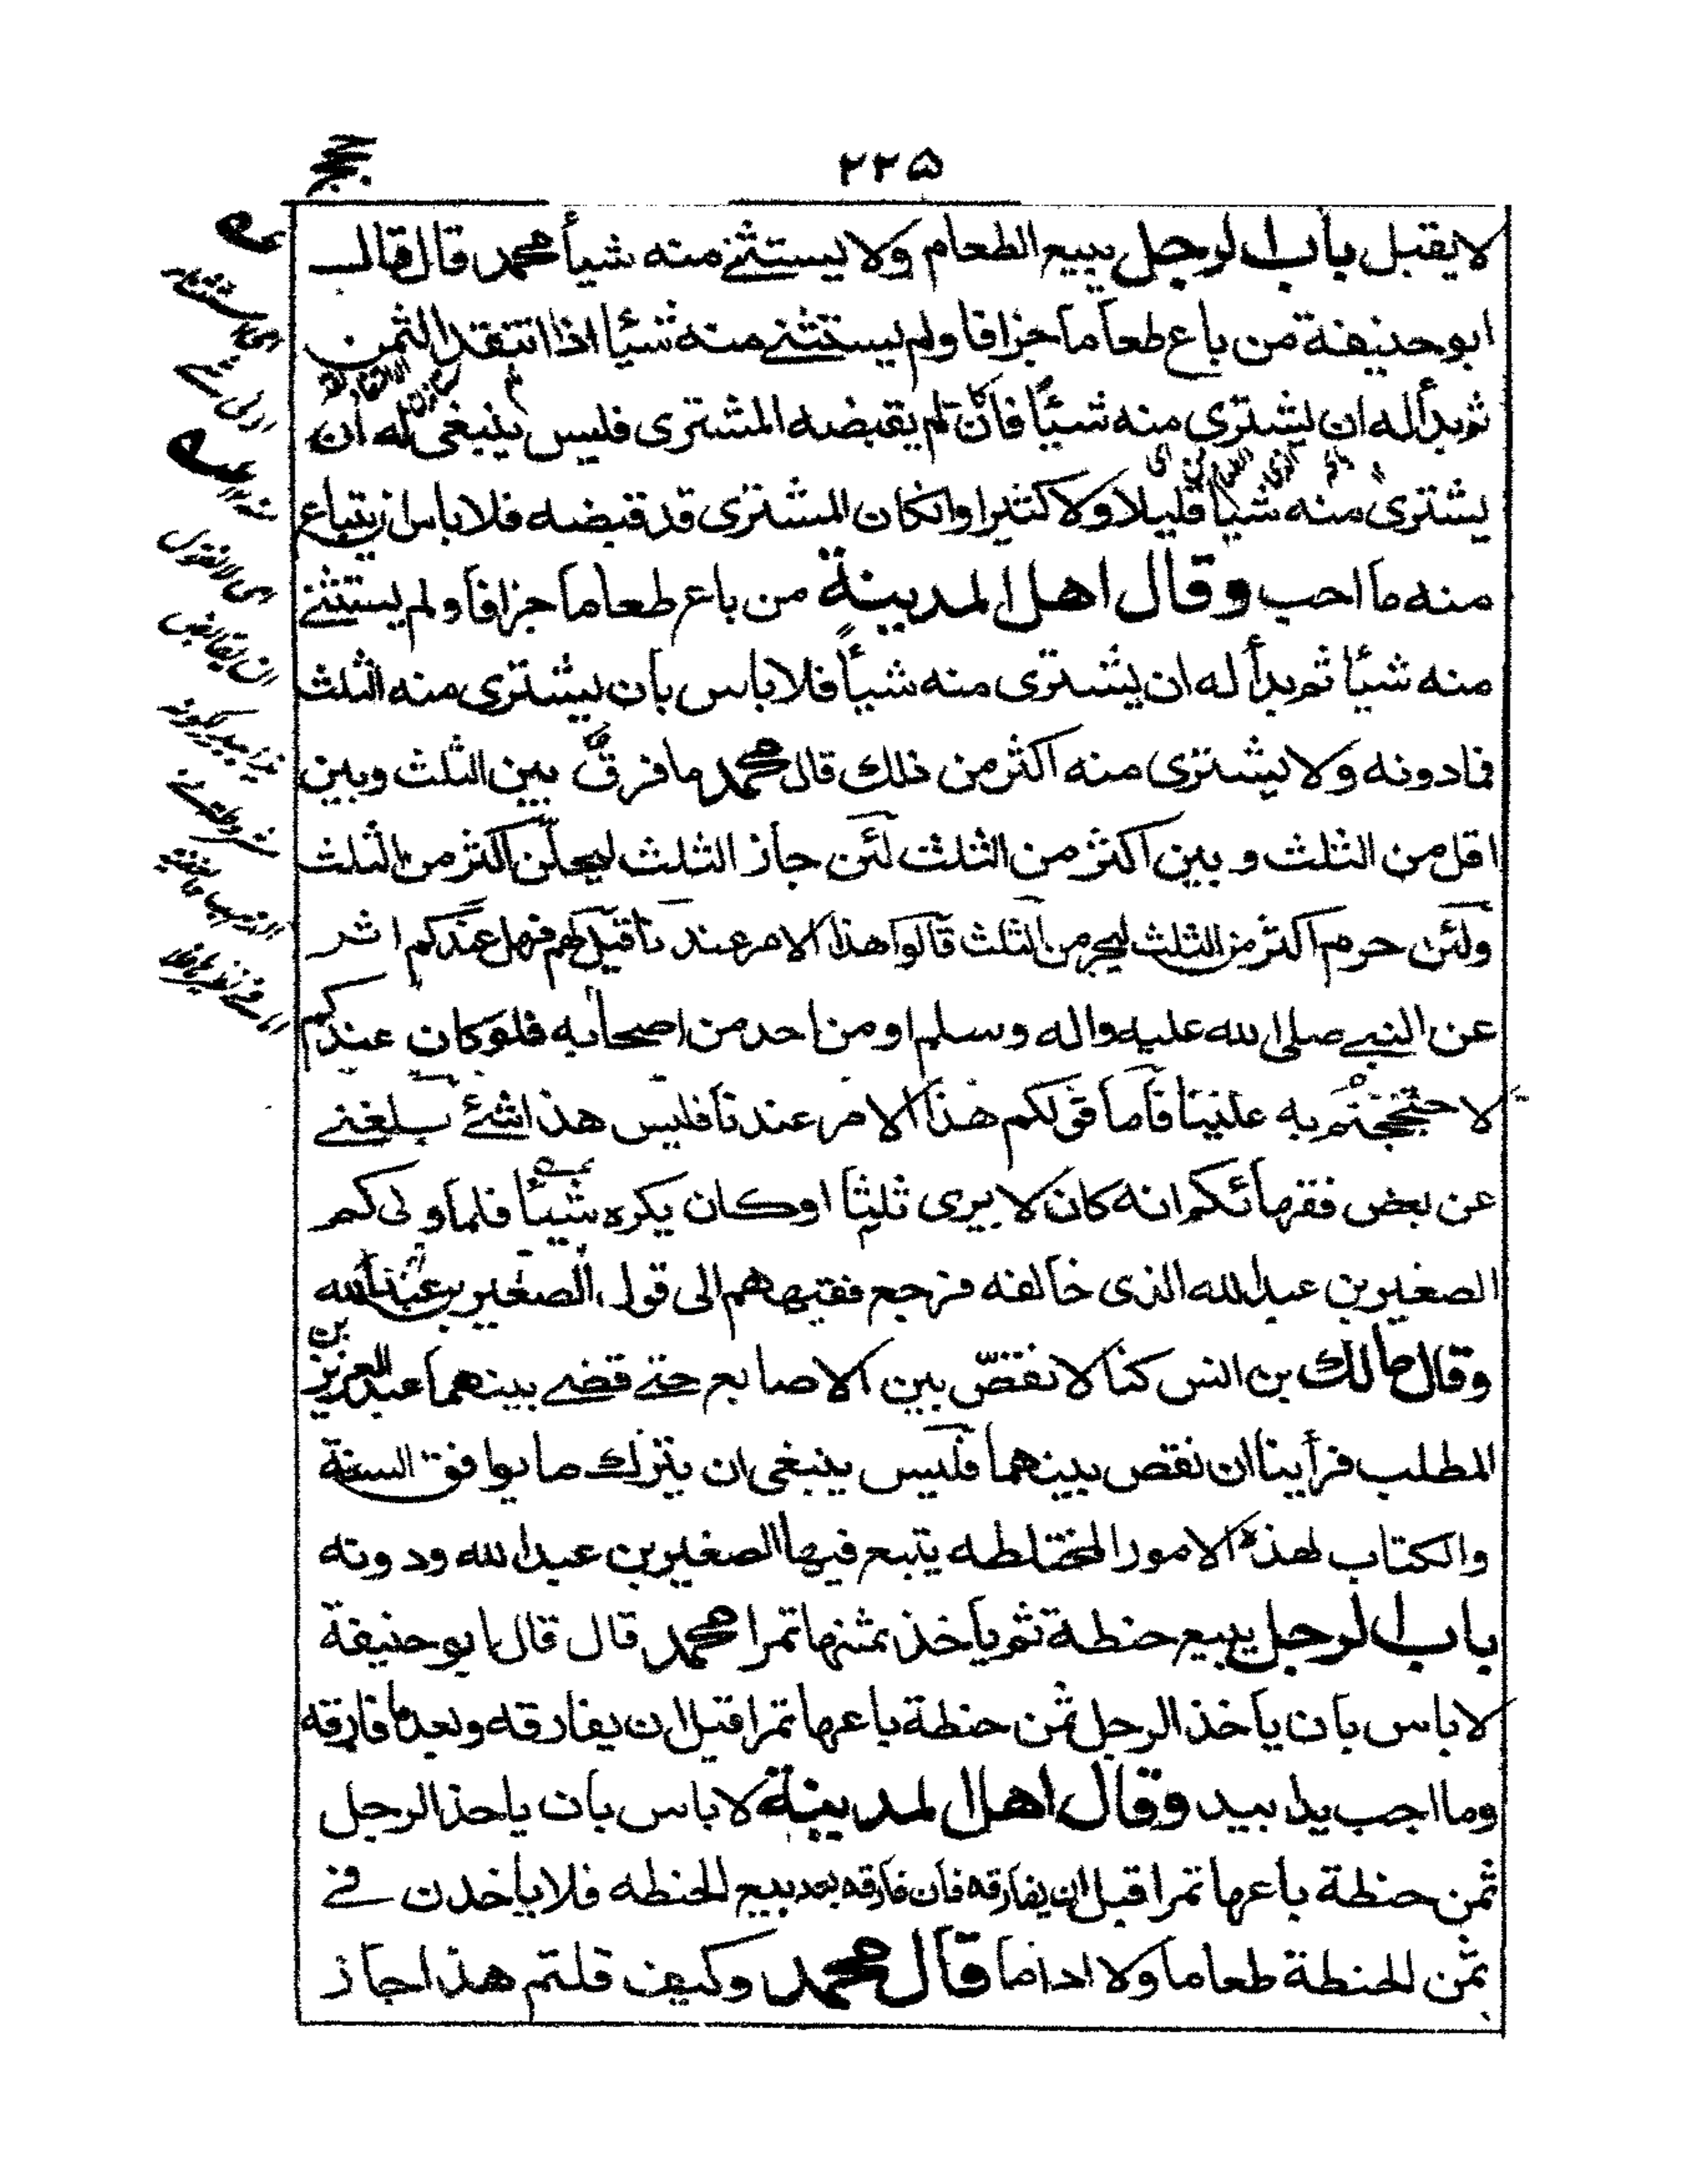 ٢٢٥
لا يقبل باب الرجل يبيع الطعام ولا يستثنى منه شيأ محمد قال قال
ابو حنيفة من باع طعاما جزافا ولم يستثنى منه شيئا اذا انتقد الثمن
ثم بدأ له ان يشترى منه شيئا فان كان لم يقبضه المشترى فليس ينبغى له ان
يشترى منه شيأ قليلا ولا كثيرا وانكان المشترى قد قبضه فلا باس ان يتباع
منه ما احب وقال اهل المدينة من باع طعاما جزافا ولم يستثنى
منه شيئا ثم بدأ له ان يشترى منه شيئاً فلا باس بان يشترى منه الثلث
فما دونه ولا يشترى منه اكثر من ذلك قال محمد ما فرق بين الثلث وبين
اقل من الثلث وبين اكثر من الثلث لئن جاز الثلث ليحلن اكثر من الثلث
ولئن حرم اكثر من الثلث ليحرمن الثلث قالوا هذا الامر عندنا قيل لهم فهل عندكم اثر
عن النبى صلى الله عليه واله وسلم او من احد من اصحابه فلو كان عندكم
لاحتججتم به علينا فاما قولكم هذا الامر عندنا فليس هذا شئ بلغنى
عن بعض فقهائكم انه كان لا يرى ثلثا او كان يكره شيئا فلما ولى كم
الصغير بن عبد الله الذى خالفه فرجع فقيههم الى قول الصغير بن عبد الله
وقال مالك بن انس كنا لا نقص بين الاصابع حتى قضى بينهما عبد العزيز بن
المطلب فرأينا ان نقص بينهما فليس ينبغى ان يترك ما يوافق السنة
والكتاب لهذه الامور المختلطه يتبع فيها الصغير بن عبد الله ودونه
باب الرجل يبيع حنطة ثم يأخذ بثمنها تمرا محمد قال قال ابو حنيفة
لا باس بان يأخذ الرجل ثمن حنطة باعها تمرا قبل ان يفارقه وبعد ما فارقه
وما اجب يدا بيد وقال اهل المدينة لا باس بان ياخذ الرجل
ثمن حنطة باعها تمرا قبل ان يفارقه فان فارقه بعد بيع الحنطه فلا ياخذن فى
ثمن الحنطة طعاما ولا اداما قال محمد وكيف قلتم هذا جاز